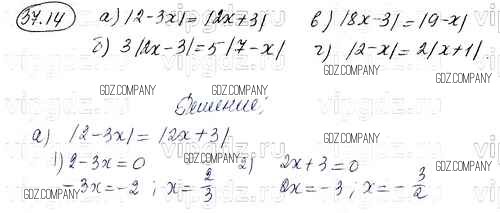 37.14 а) |2-3x| = |2x+3| в) |8x-3| = |9-x|
б) 3|2x-3| = 5|7-x| г) |2-x| = 2|x+1|
GDZ.COMPANY GDZ.COMPANY GDZ.COMPANY
Решение:
а) |2-3x| = |2x+3|
GDZ.COMPANY GDZ.COMPANY GDZ.COMPANY
1) 2-3x=0 2) 2x+3=0
-3x=-2; x=2/3 2x=-3; x=-3/2
GDZ.COMPANY GDZ.COMPANY